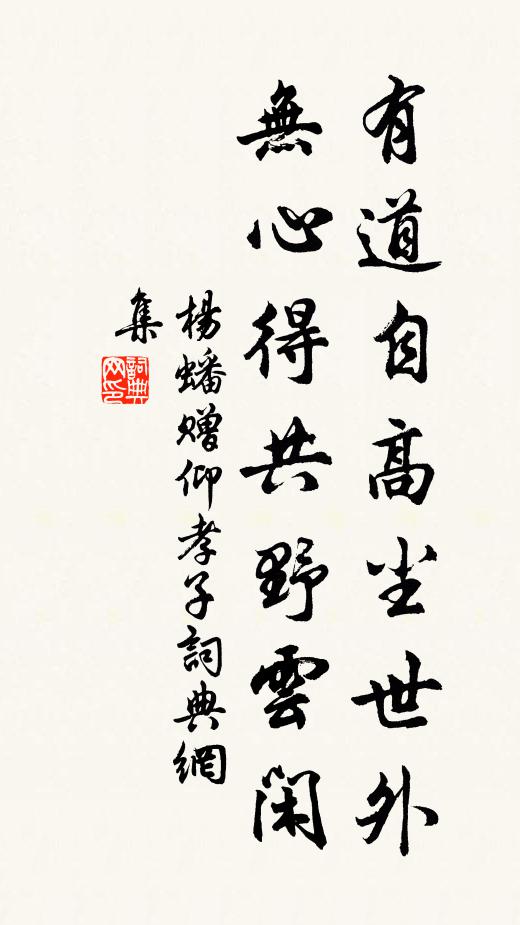 有道自高尘世外
無心得共野雲闲
楊蟠赠仰孝子詞典網
集
詞典
网印